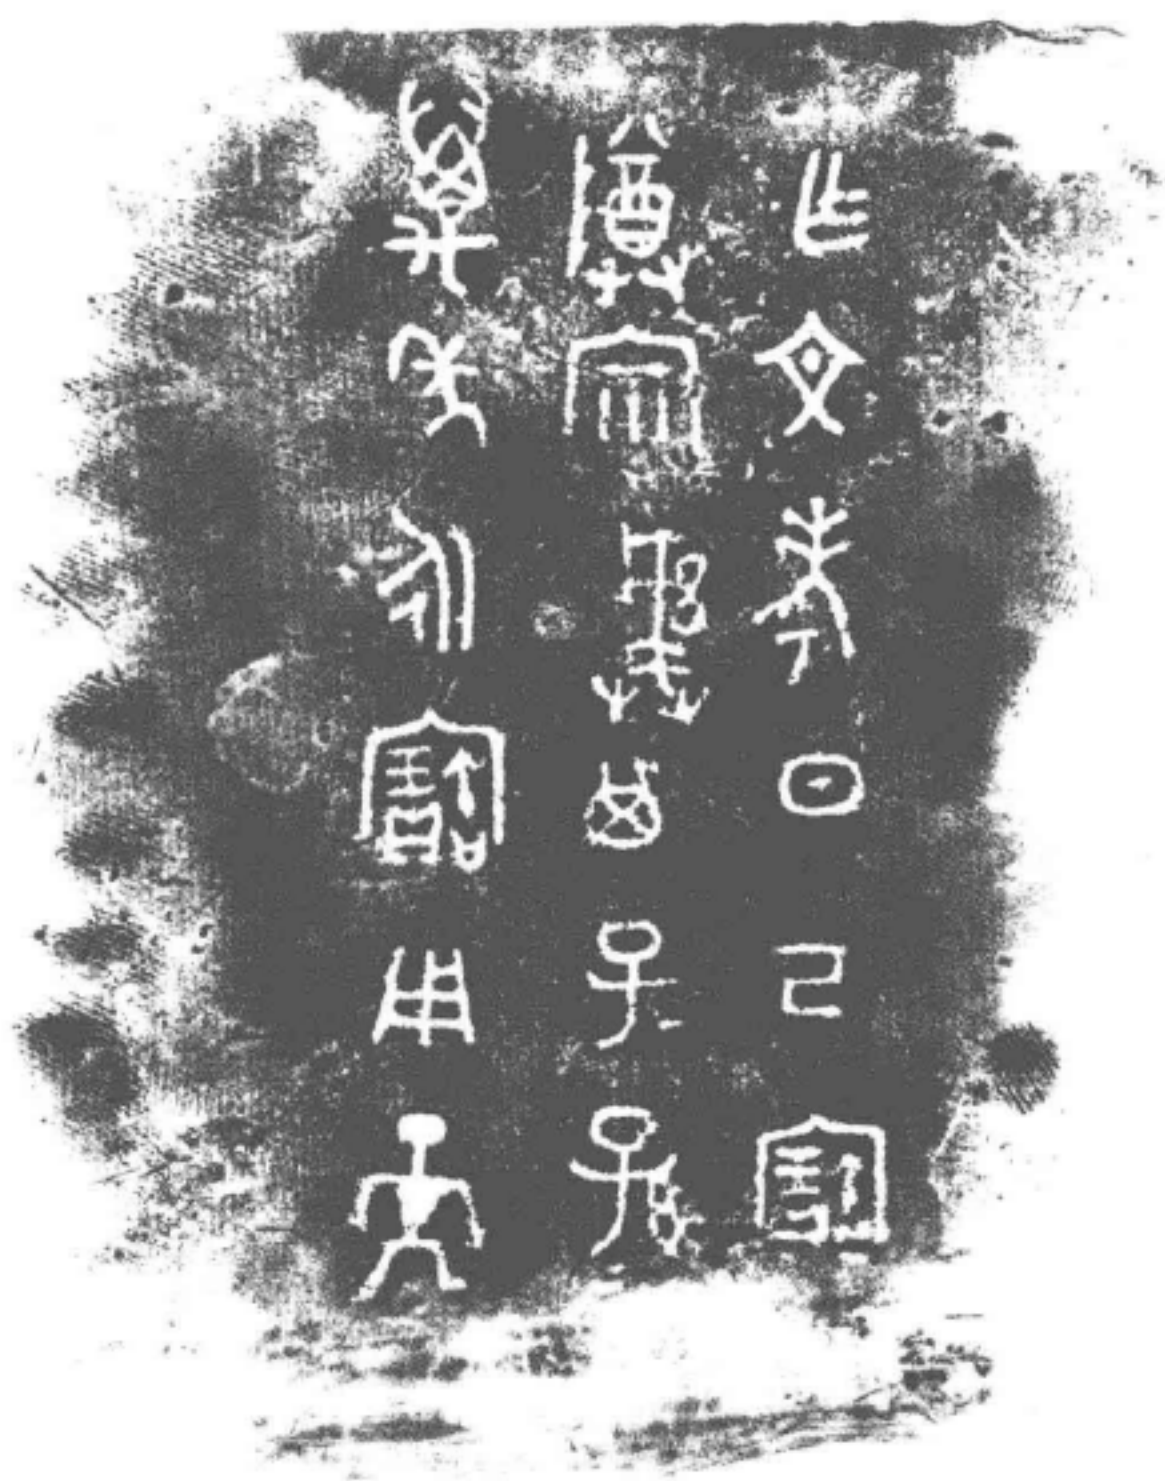 乍文考日己寶
尊宗彝其子〻孫〻
萬年永寶用天